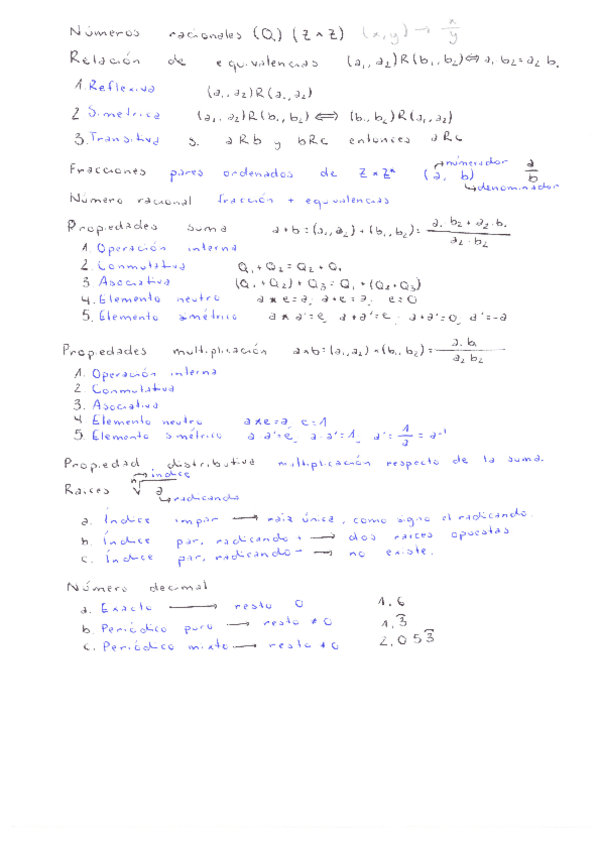 Números racionales (Q) (Z ^ Z) (x,y) → x/y
Relación de equivalencias (a₁, a₂) R (b₁, b₂) ⇔ a₁ b₂ = a₂ b₁
1. Reflexiva (a₁, a₂) R (a₁, a₂)
2 Simétrica (a₁, a₂) R (b₁, b₂) ⇔ (b₁, b₂) R (a₁, a₂)
3. Transitiva si aRb y bRc entonces aRc
Fracciones pares ordenados de Z × Z* (a, b) a/b
numerador
denominador
Número racional fracción + equivalencias
Propiedades suma a+b = (a₁, a₂) + (b₁, b₂) = a₁·b₂ + a₂·b₁ / a₂·b₂
1. Operación interna
2. Conmutativa Q₁ + Q₂ = Q₂ + Q₁
3 Asociativa (Q₁ + Q₂) + Q₃ = Q₁ + (Q₂ + Q₃)
4. Elemento neutro a * e = a, a + e = a, e = 0
5. Elemento simétrico a * a' = e, a + a' = e, a + a' = 0, a' = -a
Propiedades multiplicación a*b = (a₁, a₂) * (b₁, b₂) = a₁ b₁ / a₂ b₂
1. Operación interna
2. Conmutativa
3. Asociativa
4 Elemento neutro a * e = a, e = 1
5. Elemento simétrico a a' = e, a·a' = 1, a' = 1/a = a⁻¹
Propiedad distributiva multiplicación respecto de la suma.
Raíces ⁿ√a
índice
radicando
a. Índice impar → raíz única, como signo el radicando.
b. Índice par, radicando + → dos raíces opuestas
c. Índice par, radicando - → no existe.
Número decimal
a. Exacto → resto 0 1.6
b. Periódico puro → resto ≠ 0 1.3̂
c. Periódico mixto → resto ≠ 0 2.053̂